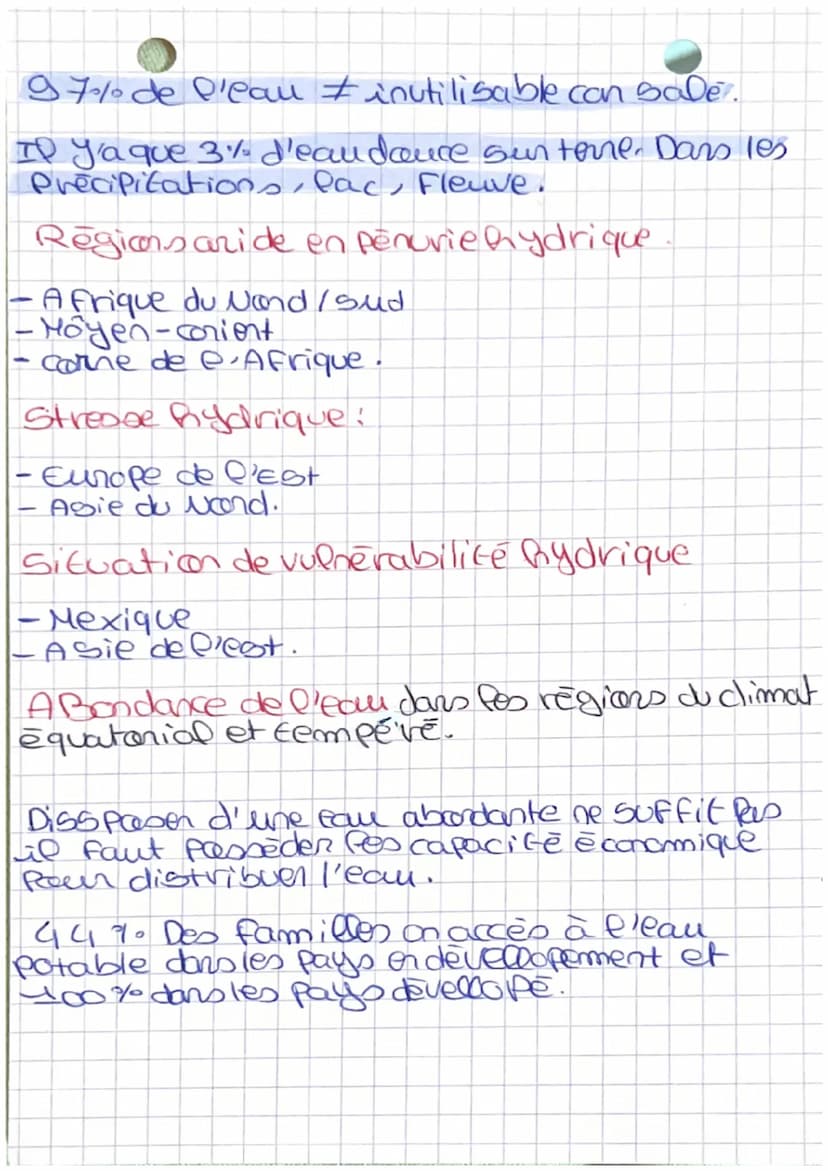 97% de l'eau ≠ inutilisable car salé.
Il y'a que 3% d'eau douce sur terre. Dans les
précipitations, lac, Fleuve.
Régions aride en pénurie hydrique.
- Afrique du Nord / sud
- Moyen-orient
- corne de l'Afrique.
Stresse hydrique :
- Europe de l'Est
- Asie du Nord.
Situation de vulnérabilité hydrique
- Mexique
- Asie de l'est.
ABondance de l'eau dans les régions du climat
équatorial et tempéré.
Dissposer d'une eau abondante ne suffit pas
il faut posséder les capacité économique
pour distribuer l'eau.
44% Des familles on accès à l'eau
potable dans les pays en dévelloppement et
100% dans les pays dévellopé.